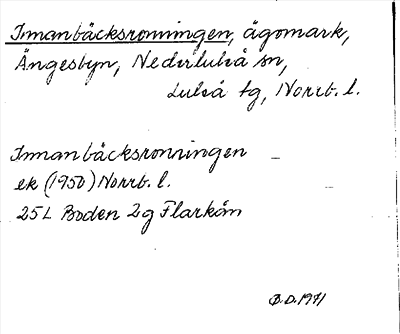 Innanbäcksronningen, ägomark,
Ängesbyn, Nederluleå sn,
Luleå tg, Norrb. l.
Innanbäcksronningen
ek (1950) Norrb. l.
25L Boden 2g Flarkån
B.D. 1971